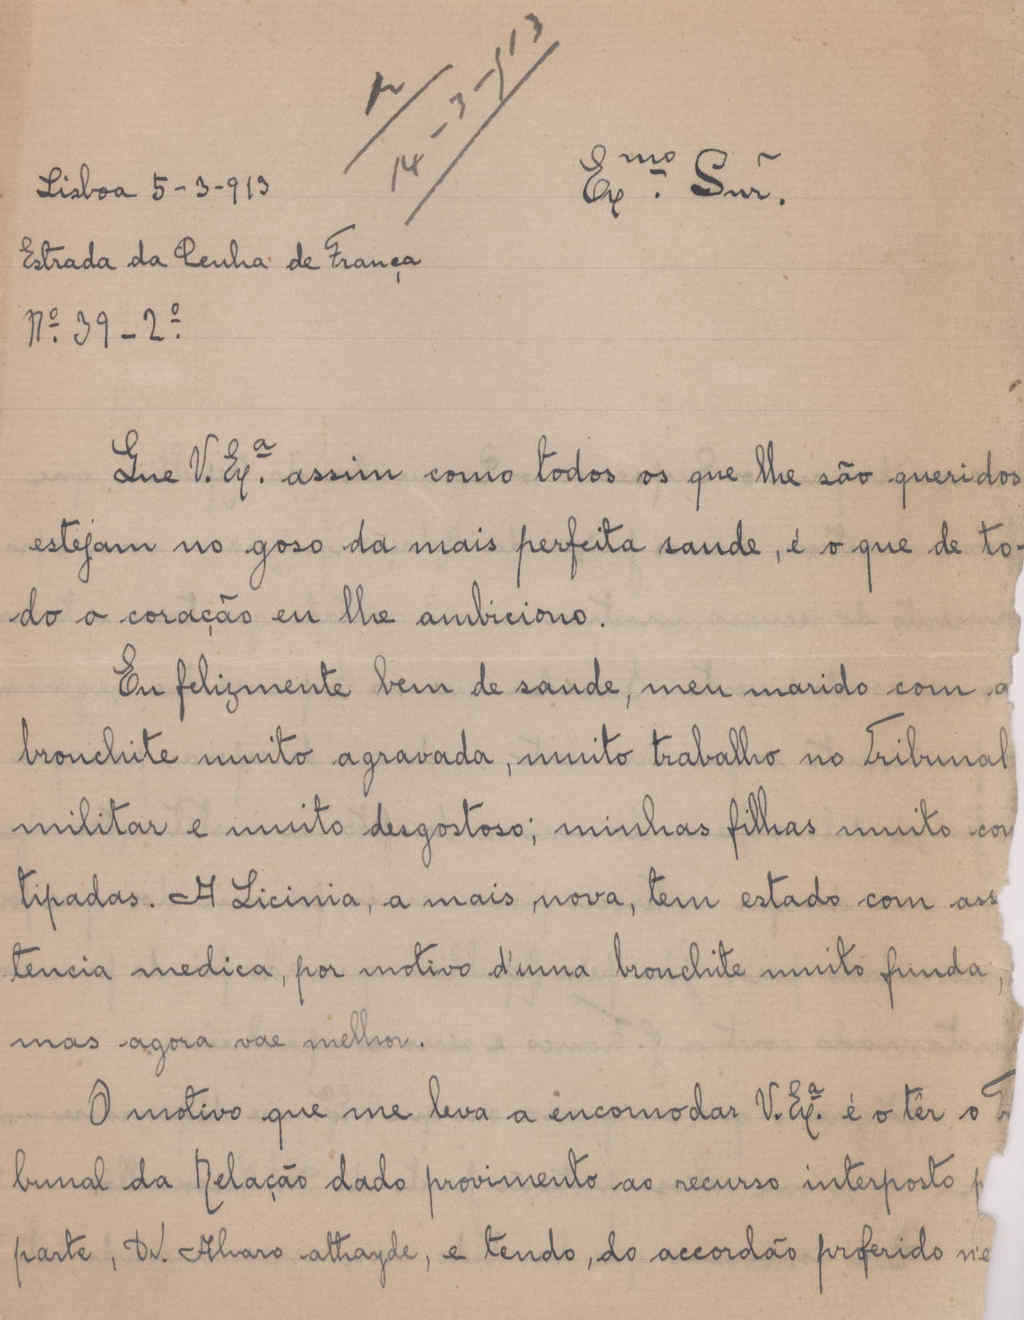 R
14-3-913
Lisboa 5-3-913
Ex.mo Snr.
Estrada da Penha de França
Nº. 39-2º.
Que V. Ex.ª assim como todos os que lhe são queridos
estejam no goso da mais perfeita saude, é o que de to-
do o coração eu lhe ambiciono.
Eu felizmente bem de saude, meu marido com a
bronchite muito agravada, muito trabalho no Tribunal
militar e muito desgostoso; minhas filhas muito con
tipadas. A Licinia, a mais nova, tem estado com ass
tencia medica, por motivo d'uma bronchite muito funda,
mas agora vae melhor.
O motivo que me leva a encomodar V. Ex.ª é o têr o T
bunal da Relação dado provimento ao recurso interposto p
parte, Dr. Alvaro Athayde, e tendo, do accordão proferido n'e